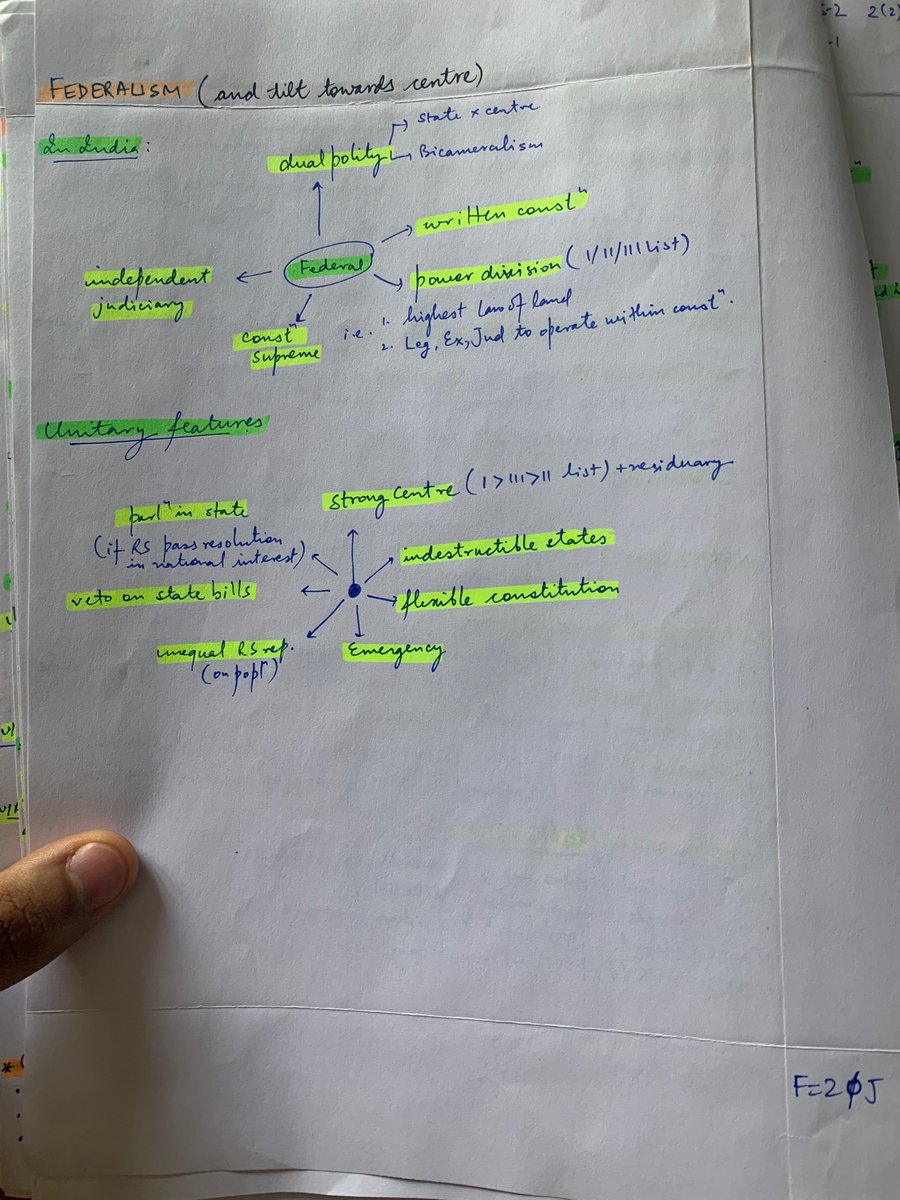 FEDERALISM (and tilt towards centre)
In India:
state x centre
dual polity
Bicameralism
written constⁿ
Federal
independent
judiciary
power division (I/II/III List)
constⁿ
supreme
i.e. 1. highest law of land
2. Leg, Ex, Jud to operate within constⁿ.
Unitary features
strong centre (I > III > II list) + residuary
parlⁿ in state
(if RS pass resolution
in national interest)
indestructible states
veto on state bills
flexible constitution
unequal RS rep.
(on popⁿ)
Emergency
F=2
S-2 2(2)
-1